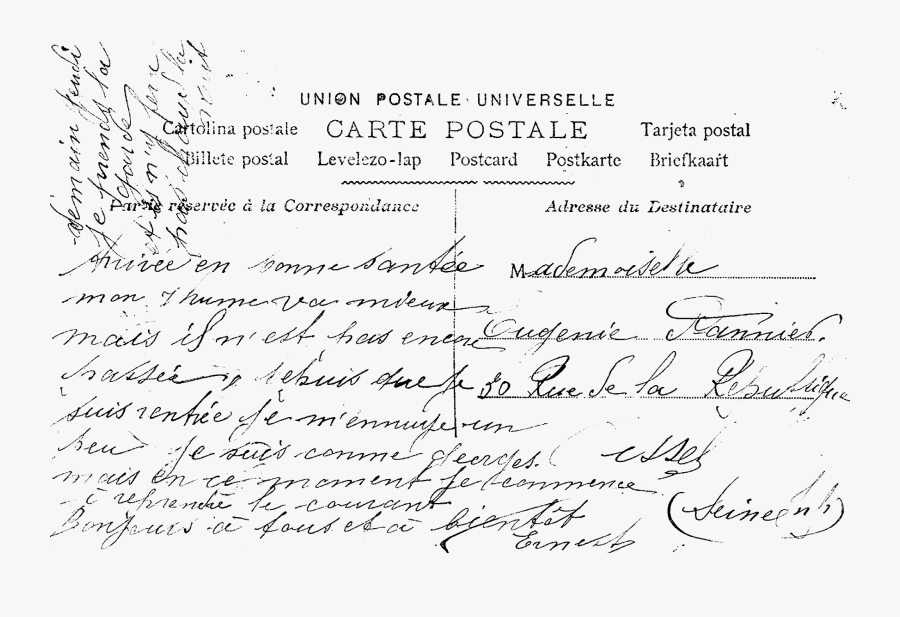 UNION POSTALE UNIVERSELLE
Cartolina postale CARTE POSTALE Tarjeta postal
Billete postal Levelezo-lap Postcard Postkarte Briefkaart
Partie réservée à la Correspondance
Adresse du Destinataire
Demain jeudi
je prends la
garde
et
Arrivée en bonne santée
mon rhume va mieux
mais il n'est pas encore
passée, depuis que je
suis rentrée je m'ennuye un
peu je suis comme georges.
mais en ce moment je commence
à reprendre le courant
Bonjours à tous et à bientôt
Ernest
Mademoiselle
Eugenie
30 Rue de la République
(Seine Inf)